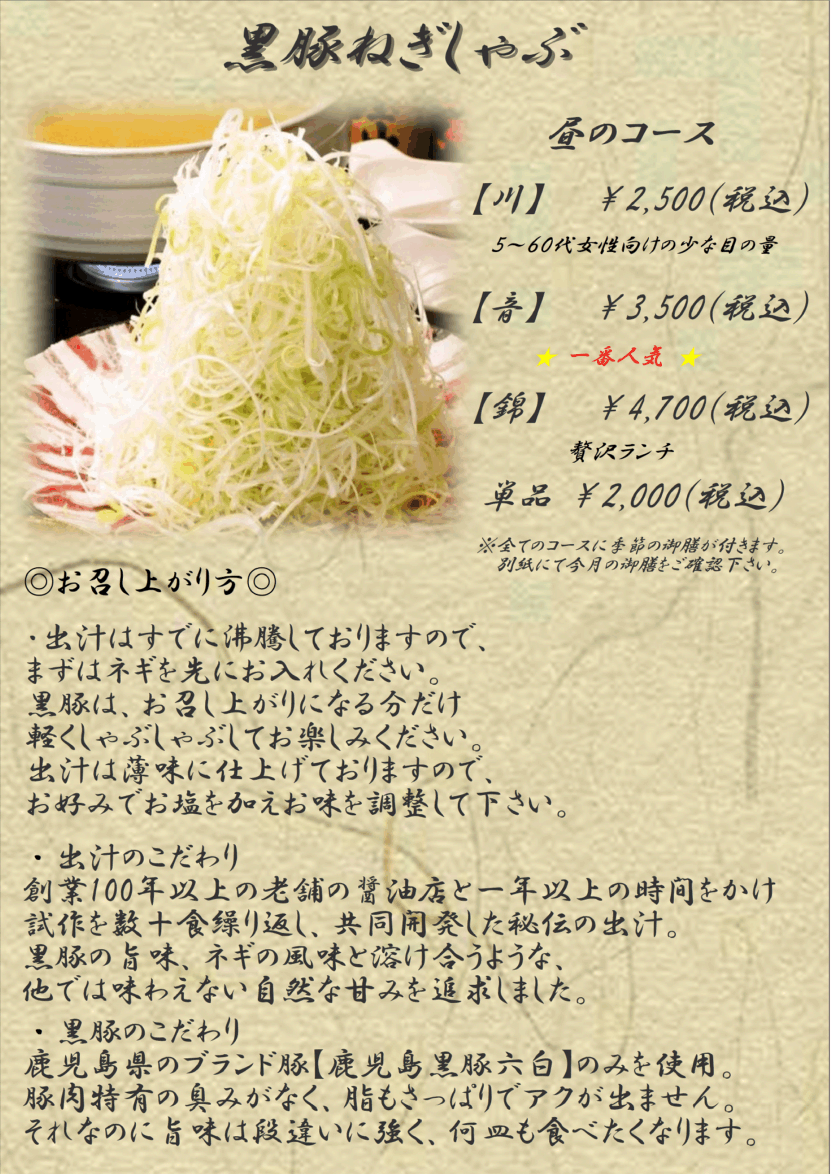 黒豚ねぎしゃぶ
昼のコース
【川】 ¥2,500(税込)
5~60代女性向けの少な目の量
【音】 ¥3,500(税込)
★ 一番人気 ★
【錦】 ¥4,700(税込)
贅沢ランチ
単品 ¥2,000(税込)
※全てのコースに季節の御膳が付きます。
別紙にて今月の御膳をご確認下さい。
◎お召し上がり方◎
・出汁はすでに沸騰しておりますので、
まずはネギを先にお入れください。
黒豚は、お召し上がりになる分だけ
軽くしゃぶしゃぶしてお楽しみください。
出汁は薄味に仕上げておりますので、
お好みでお塩を加えお味を調整して下さい。
・出汁のこだわり
創業100年以上の老舗の醤油店と一年以上の時間をかけ
試作を数十食繰り返し、共同開発した秘伝の出汁。
黒豚の旨味、ネギの風味と溶け合うような、
他では味わえない自然な甘みを追求しました。
・黒豚のこだわり
鹿児島県のブランド豚【鹿児島黒豚六白】のみを使用。
豚肉特有の臭みがなく、脂もさっぱりでアクが出ません。
それなのに旨味は段違いに強く、何皿も食べたくなります。